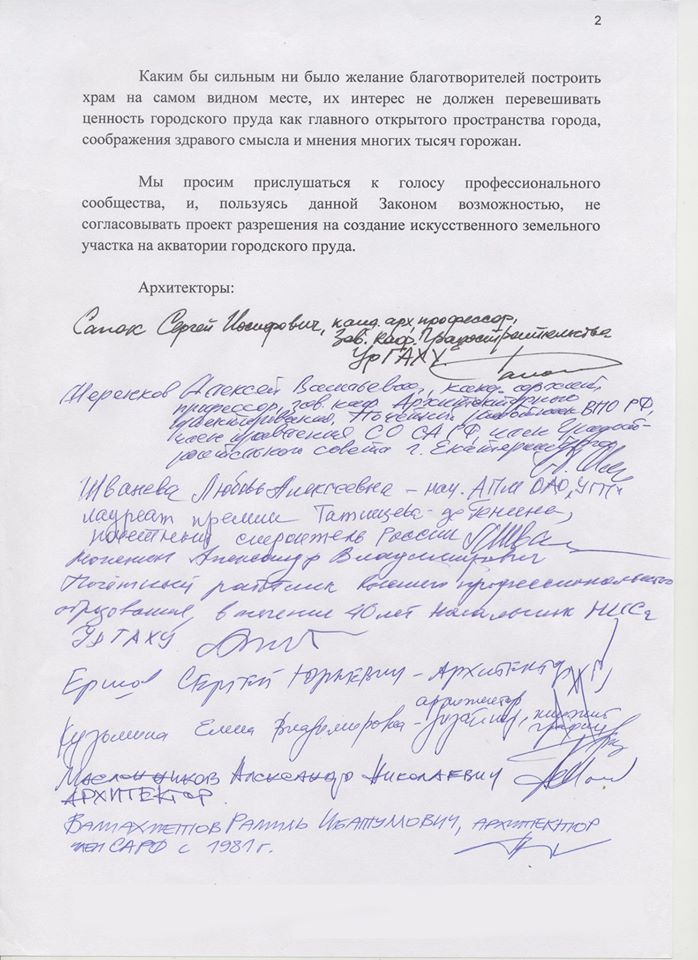 2
Каким бы сильным ни было желание благотворителей построить
храм на самом видном месте, их интерес не должен перевешивать
ценность городского пруда как главного открытого пространства города,
соображения здравого смысла и мнения многих тысяч горожан.
Мы просим прислушаться к голосу профессионального
сообщества, и, пользуясь данной Законом возможностью, не
согласовывать проект разрешения на создание искусственного земельного
участка на акватории городского пруда.
Архитекторы:
Санок Сергей Иосифович, канд. арх, профессор,
Зав. каф. Градостроительства
УрГАХУ
Меренков Алексей Васильевич, канд. архит.
профессор, зав. каф. Архитектурного
проектирования, Почётный работник ВПО РФ,
член правления СО СА РФ, член Градост-
роительного совета г. Екатеринбурга
Шванева Любовь Алексеевна - нач. АПМ ОАО,
лауреат премии Татищева-де Генина,
почетный строитель России
Александр Владимирович
Почётный работник высшего профессионального
образования, в течение 40 лет начальник НИСа
УрГАХУ
Ершов Сергей Юрьевич - Архитектор
Кузьмина Елена Владимировна - архитектор
дизайнер, книжный
график
Масленников Александр Николаевич
Архитектор
Валиахметов Рамиль Ибатуллович, архитектор
член САРФ с 1981 г.